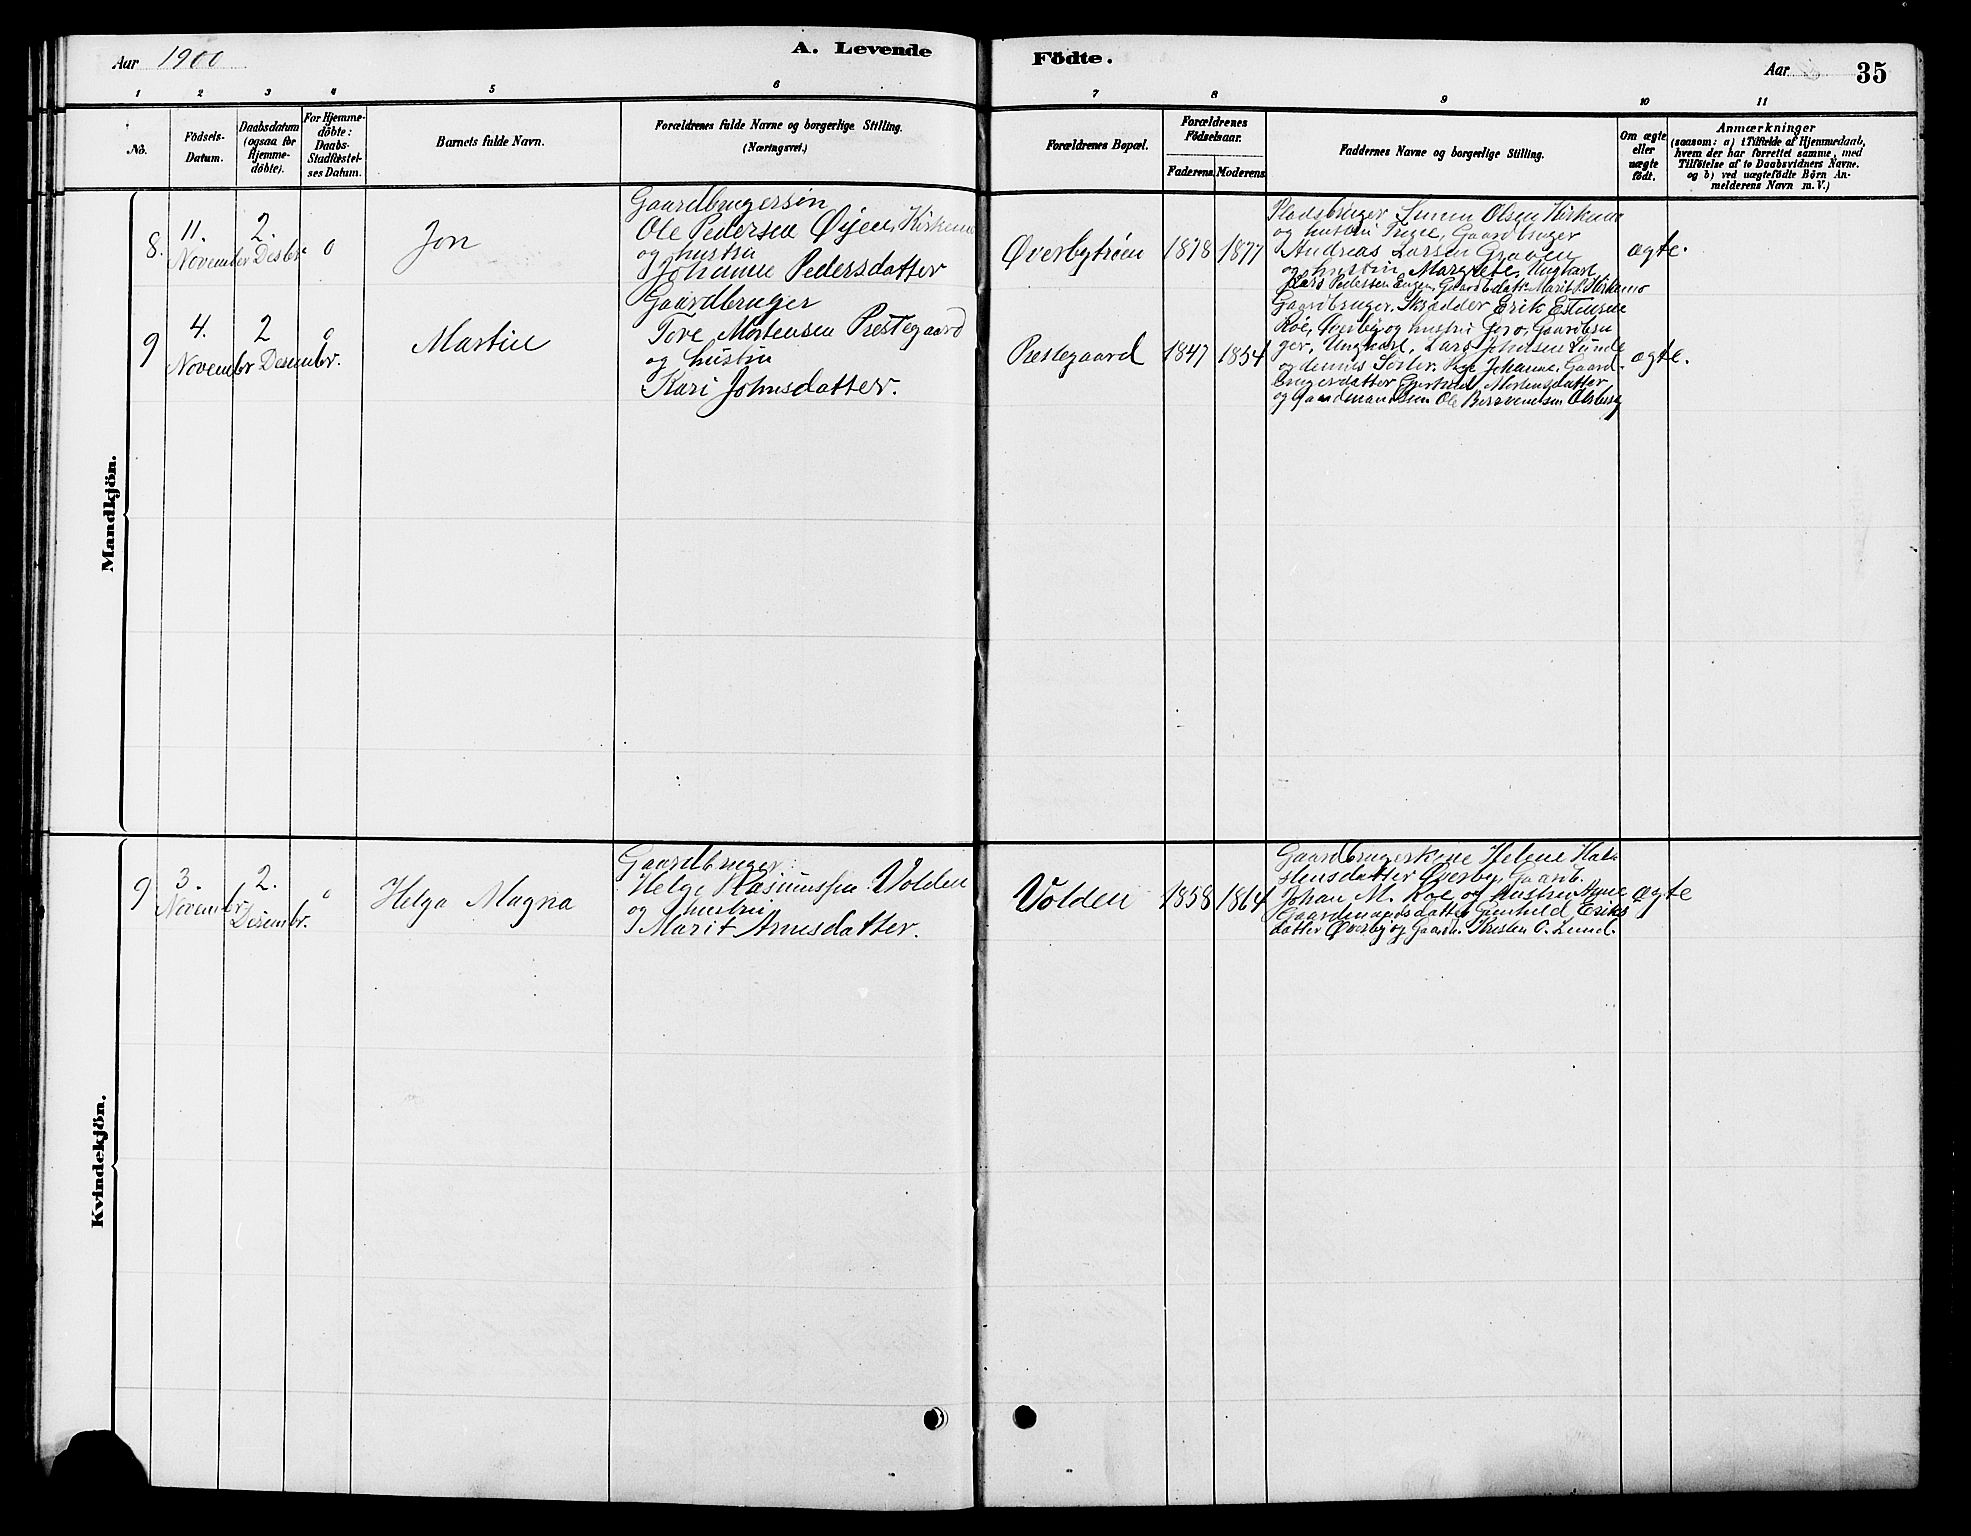 Aar 1900
A. Levende
Födte.
Aar
35
1 2 3 4 5 6 7 8 9 10 11
No.
Födsels-
Datum.
Daabsdatum
(ogsaa for
Hjemme-
döbte).
For Hjemme-
döbte:
Daabs-
Stadfæstel-
ses Datum.
Barnets fulde Navn.
Forældrenes fulde Navne og borgerlige Stilling.
(Næringsvei.)
Forældrenes Bopæl.
Forældrenes
Födselsaar.
Faderens. Moderens.
Faddernes Navne og borgerlige Stilling.
Om ægte
eller
uægte
født.
Anmærkninger
(saasom: a) i Tilfælde af Hjemmedaab,
hvem der har forrettet samme, med
Tilföielse af to Daabsvidners Navne.
og b) ved uægtefödte Börn An-
melderens Navn m. V.)
Mandkjön.
8.
11.
November
2.
Desbr.
0
Jon
Gaardbrugersøn
Ole Pedersen Øien, Kirkemo
og hustru
Johanne Pedersdatter
Øverbytrøen
1878
1877
Pladsbruger Simen Olsen Kirkemo
og hustru Gaardbruger
Andreas Larsen Graaen
og hustru Margrete, Ungkarl
Lars Pedersen Engen, Gaardbdatt. Marit Kirkemo
ægte.
9
4.
November
2
Desember.
0
Martin
Gaardbruger
Tore Mortensen Prestegaard
og hustru
Kari Johnsdatter.
Prestegaard
1847
1854
Gaardbruger, Skrædder Erik Estensene
Koe, Øverby og hustru Goro, Gaardbru
ger, Ungkarl, Lars Johnsen Lunde
og dennes Søster, Pige Johanne, Gaard-
brugersdatter Gjertrud Mortensdatter
og Gaardmandssøn Ole Olsberg
ægte.
Kvindekjön.
9
3.
November
2.
Desembr.
0
Helga Magna
Gaardbruger
Helge Rasmussen Volden
og hustru
Marit Arnesdatter.
Volden
1858
1864
Gaardbrugerkone Helene Hal-
stensdatter Øverby, Gaardb.
Johan M. Koe og hustru
Gaardmandsdatter Gunhild Eriks
datter Øverby og Gaardb. Kristen O. Lund.
ægte